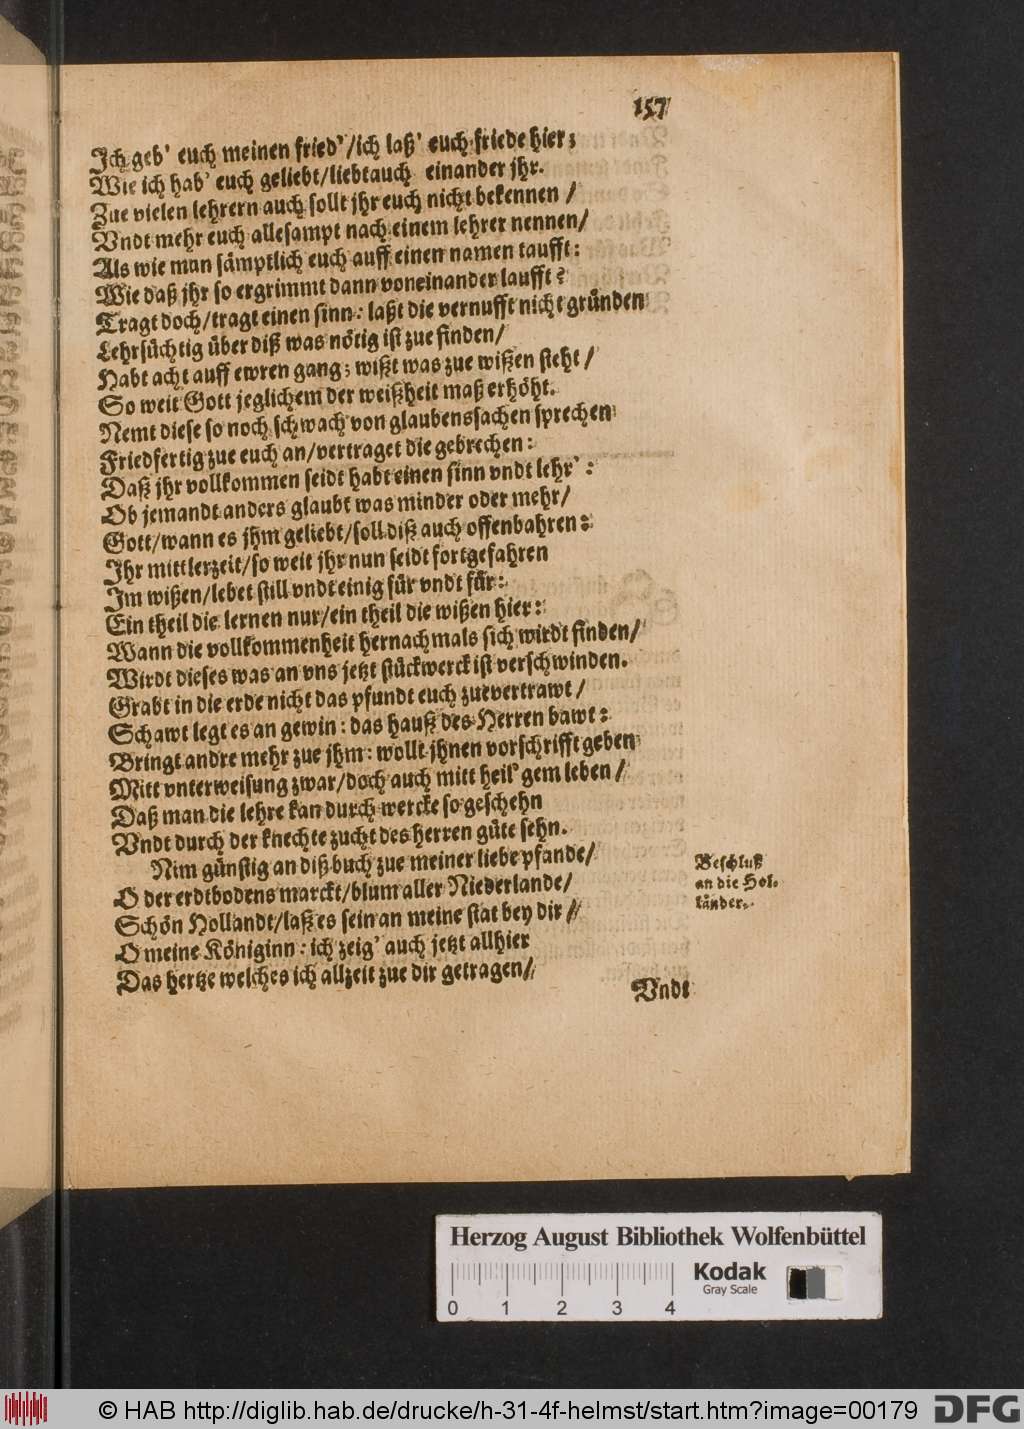 157
Ich geb' euch meinen fried'/ich laß' euch friede hier;
Wie ich hab' euch geliebt/liebt auch einander jhr.
Zue vielen lehrern auch sollt jhr euch nicht bekennen /
Vndt mehr euch allesampt nach einem lehrer nennen/
Als wie man sämptlich euch auff einen namen taufft:
Wie daß jhr so ergrimmt dann voneinander laufft?
Tragt doch/tragt einen sinn: laßt die vernufft nicht gründen
Lehrsüchtig über diß was nötig ist zue finden/
Habt acht auff ewren gang; wißt was zue wißen steht /
So weit Gott jeglichem der weißheit maß erhöht.
Nemt diese so noch schwach von glaubenssachen sprechen
Friedfertig zue euch an/vertraget die gebrechen:
Daß jhr vollkommen seidt habt einen sinn vndt lehr':
Ob jemandt anders glaubt was minder oder mehr/
Gott/wann es jhm geliebt/soll diß auch offenbahren:
Ihr mittlerzeit/so weit jhr nun seidt fortgefahren
Im wißen/lebet still vndt einig für vndt für:
Ein theil die lernen nur/ein theil die wißen hier:
Wann die vollkommenheit hernachmals sich wirdt finden/
Wirdt dieses was an vns jetzt stückwerck ist verschwinden.
Grabt in die erde nicht das pfundt euch zuevertrawt /
Schawt legt es an gewin: das hauß des Herren bawt:
Bringt andre mehr zue jhm: wollt jhnen vorschrifft geben
Mitt vnterweisung zwar/doch auch mitt heil'gem leben /
Daß man die lehre kan durch wercke so geschehn
Vndt durch der knechte zucht des herren güte sehn.
Nim günstig an diß buch zue meiner liebe pfande/
O der erdtbodens marckt/blum aller Niederlande/
Schön Hollandt/laß es sein an meine stat bey dir /
O meine Königinn: ich zeig' auch jetzt allhier
Das hertze welches ich allzeit zue dir getragen/
Beschluß
an die Hol-
länder.
Vndt
Herzog August Bibliothek Wolfenbüttel
Kodak
Gray Scale
0 1 2 3 4
© HAB http://diglib.hab.de/drucke/h-31-4f-helmst/start.htm?image=00179
DFG